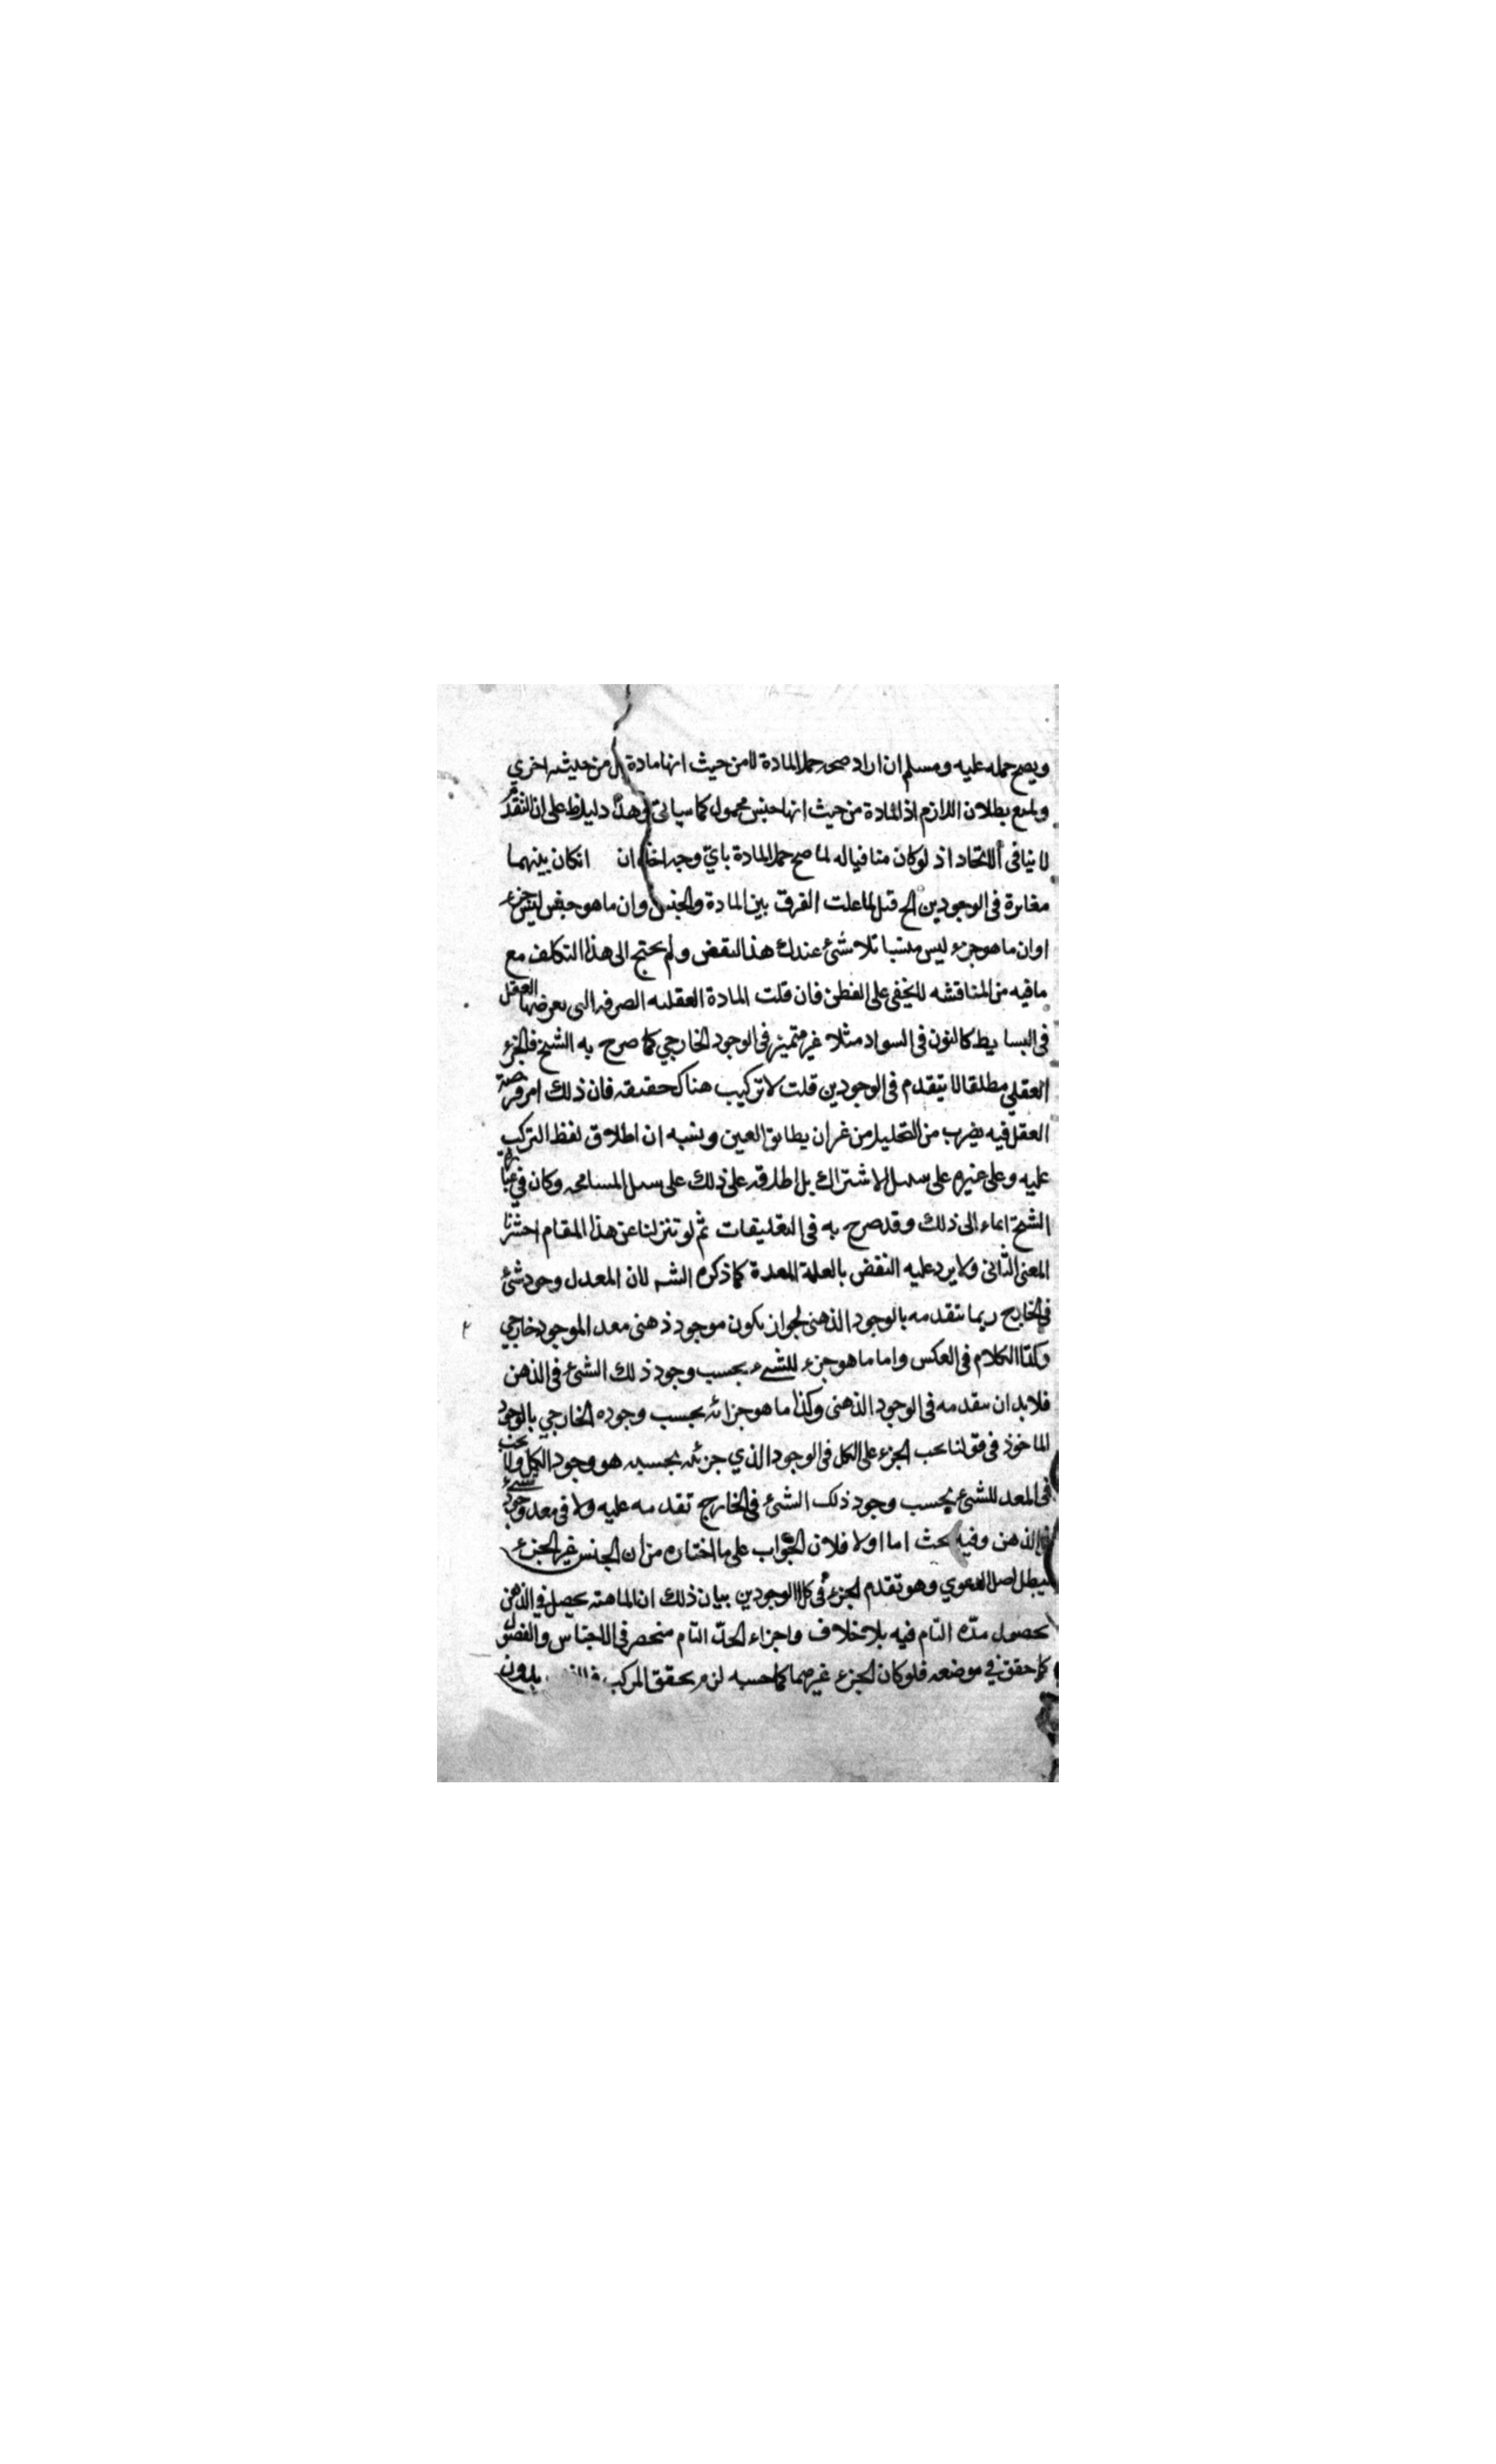 ويصح حمله عليه ومسلم ان اراد صحة حمل المادة لا من حيث انها مادة بل من حيثية اخري
ويمنع بطلان اللازم اذ المادة من حيث انها جنس محمول كما سياتى وهذا دليل ظ على ان التقدم
لا ينافى الاتحاد اذ لو كان منافيا له لما صح حمل المادة باي وجه اخذ ان انكان بينهما
مغايرة فى الوجودين الح قبل لما علمت الفرق بين المادة والجنس وان ما هو جنس ليس جزء
او ان ما هو جزء ليس تلاشئ عندك هذا النقض ولم يحتج الى هذا التكلف مع
ما فيه من المناقشه لا يخفى على الفطن فان قلت المادة العقليه الصرفه التى يعرضها العقل
فى البسايط كاللون فى السواد مثلا غير متميز فى الوجود الخارجي كما صرح به الشيخ فالجزء
العقلي مطلقا لا يتقدم فى الوجودين قلت لا تركيب هناك حقيقه فان ذلك امر فرضه
العقل فيه بضرب من التحليل من غير ان يطابق العين ويشبه ان اطلاق لفظ التركيب
عليه وعلى غيره على سبيل الاشتراك بل اطلاقه على ذلك على سبيل المسامحه وكان في عبارة
الشيخ ايماء الى ذلك وقد صرح به فى التعليقات ثم لو تنزلنا عن هذا المقام اخترنا
المعنى الثانى ولا يرد عليه النقض بالعلة المعدة كما ذكره الشه لان المعد ل وجود شئ
فى الخارج ربما يتقدمه بالوجود الذهنى لجواز بكون موجود ذهنى معد الموجود خارجي
وكذا الكلام فى العكس واما ما هو جزء للشىء بحسب وجود ذلك الشئ فى الذهن
فلابد ان يتقدمه فى الوجود الذهنى وكذا ما هو جزائه بحسب وجوده الخارجي بالوجود
الماخوذ فى قولنا يجب الجزء على الكل فى الوجود الذي جزئه بحسبه هو وجود الكل ولا يجب
فى المعد للشئ بحسب وجود ذلك الشئ فى الخارج تقدمه عليه ولا فى معد وجود شىء
فى الذهن وفيه بحث اما اولا فلان الجواب على ما اختاره من ان الجنس غير الجزء
يبطل اصل الدعوي وهو تقدم الجزء فى كلا الوجودين بيان ذلك ان الماهته يحصل في الذهن
بحصول حده التام فيه بلا خلاف واجزاء الحدّ التام منحصر فى الاجناس والفصول
كما حقق في موضعه فلو كان الجزء غيرهما كما حسبه لزم تحقق المركب بدون